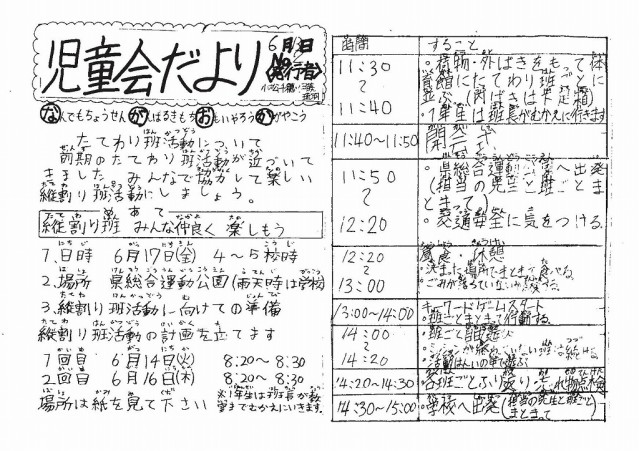 児童会だより
6月13日
No.
〈発行者〉
なんでもちょうせん がんばるきもち おもいやろう かがやこう
たてわり班活動について
前期のたてわり班活動が近づいて
きました みんなで協力して楽しい
縦割り班活動にしましょう。
縦割り班 みんな仲良く 楽しもう
1.日時 6月17日(金) 4～5校時
2.場所 県総合運動公園(雨天時は学校)
3.縦割り班活動に向けての準備
縦割り班活動の計画を立てます
1回目 6月14日(火) 8:20～8:30
2回目 6月16日(木) 8:20～8:30
場所は紙を見て下さい
※1年生は班長が教
室までむかえにいきます。
時間 すること
11:30
～
11:40
・荷物・外ばきをもって体
育館にたてわり班ごとに
並ぶ(内ばきは下足箱)
・1年生は班長がむかえに行きます
11:40～11:50 開会式
11:50
～
12:20
・県総合運動公園へ出発
(担当の先生と班ごとま
とまって)
・交通安全に気をつける。
12:20
～
13:00
昼食・休憩
・決まった場所でまとまって食べる。
・ごみが落ちていないか
13:00～14:00 キーワードゲームスタート
・班ごとまとまって行動する。
14:00
～
14:20
・班ごと自由遊び
14:20～14:30 ・各班ごとふり返り・忘れ物点検
14:30～15:00 ・学校へ出発(担当の先生と班ごと
まとまって)